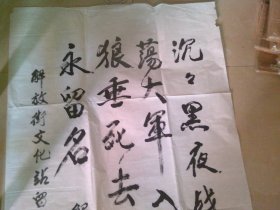 沉々黑夜战
荡大军入
狼垂死去
永留名
解放街文化站留